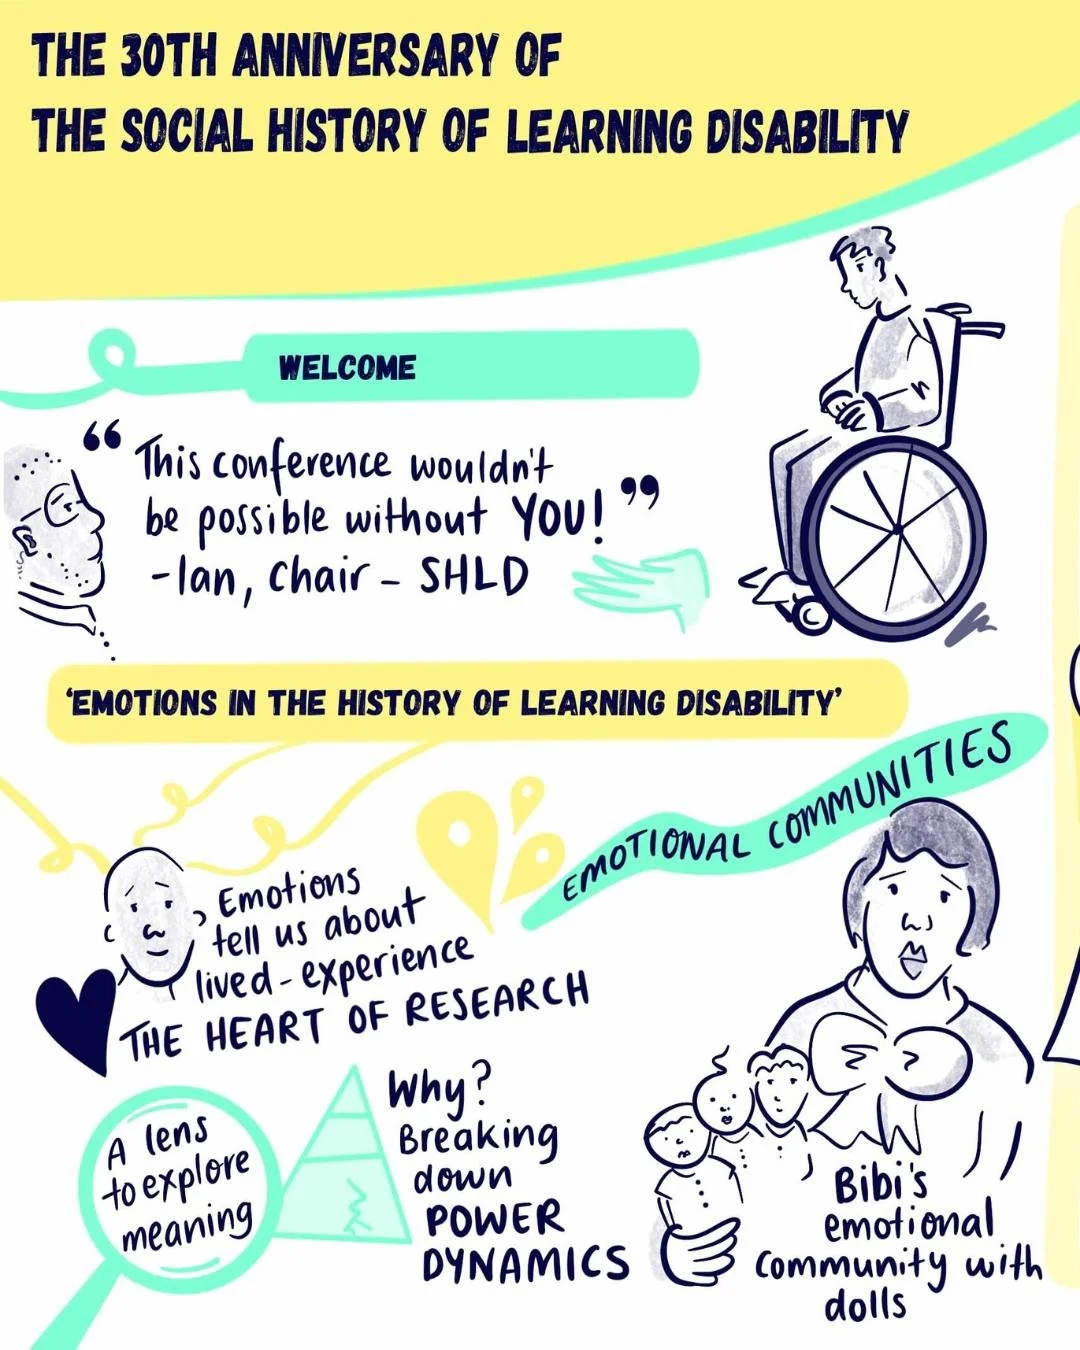 THE 30TH ANNIVERSARY OF
THE SOCIAL HISTORY OF LEARNING DISABILITY
WELCOME
“This conference wouldn't
be possible without YOU!”
- Ian, Chair - SHLD
‘EMOTIONS IN THE HISTORY OF LEARNING DISABILITY’
EMOTIONAL COMMUNITIES
Emotions
tell us about
lived-experience
THE HEART OF RESEARCH
A lens
to explore
meaning
Why?
Breaking
down
POWER
DYNAMICS
Bibi's
emotional
community with
dolls